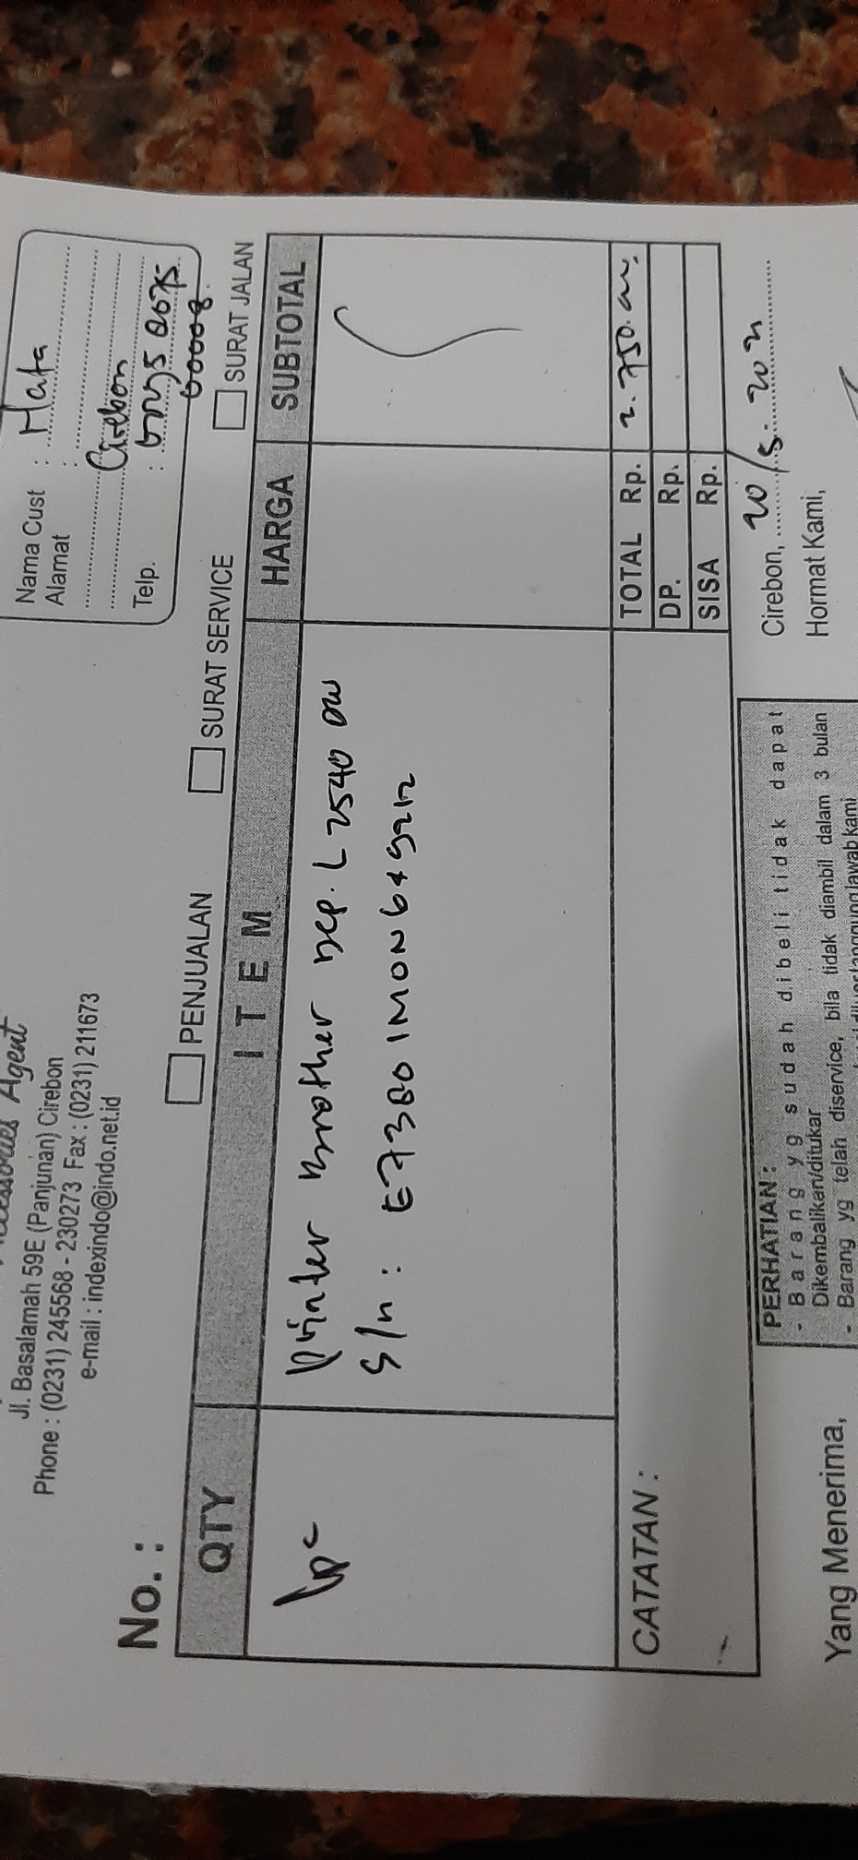 Accessories Agent
Jl. Basalamah 59E (Panjunan) Cirebon
Phone : (0231) 245568 - 230273 Fax : (0231) 211673
e-mail : indexindo@indo.net.id
Nama Cust : Mata
Alamat :
Cirebon
Telp. :
No. :
PENJUALAN SURAT SERVICE SURAT JALAN
QTY ITEM HARGA SUBTOTAL
1pc Printer Brother Dcp. L 2540 DW
S/n :
TOTAL Rp. 2.750.
DP. Rp.
SISA Rp.
CATATAN :
Cirebon, 20/5. 2021
Hormat Kami,
PERHATIAN :
- Barang yg sudah dibeli tidak dapat
Dikembalikan/ditukar
- Barang yg telah diservice, bila tidak diambil dalam 3 bulan
Yang Menerima,